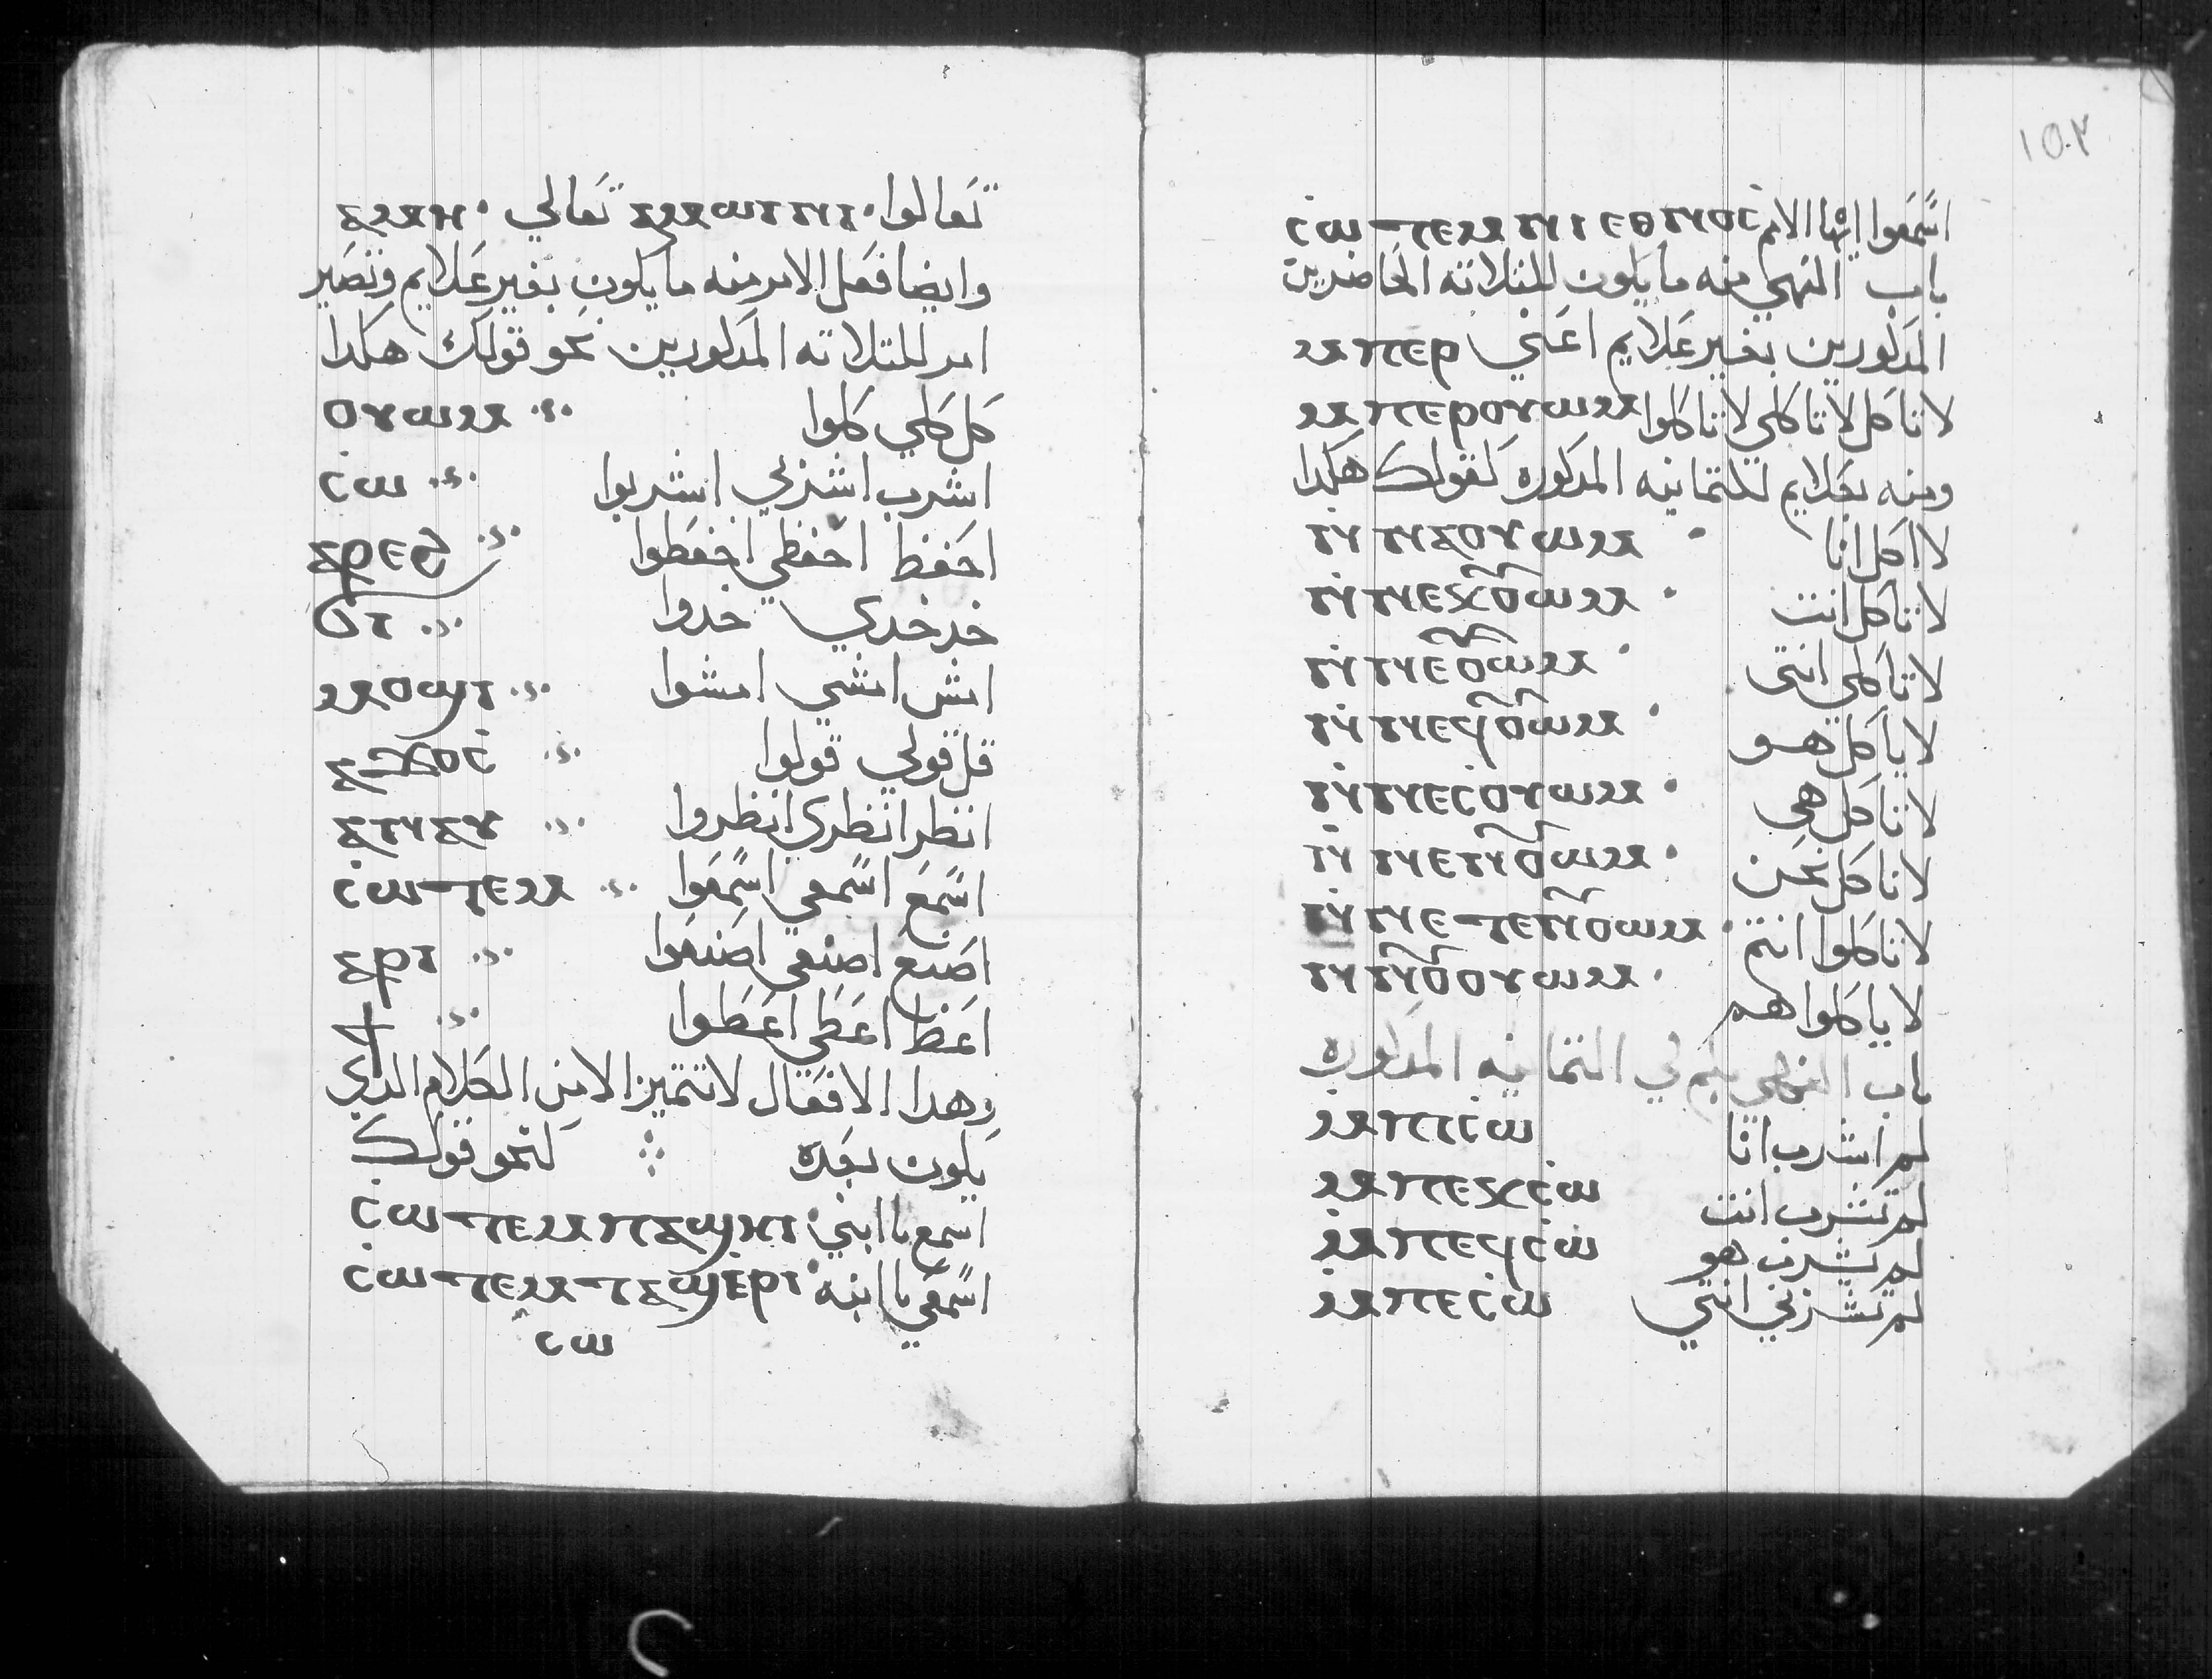 تعالوا ⲁⲙⲱⲓⲛⲓ تعالي ⲁⲙⲏ
وايضا فعل الامر منه ما يكون بغير علايم وتصير
امر للتلاته المدكورين نحو قولك هكدا
كل كلي كلوا ⲟⲩⲱⲙ
اشرب اشربي اشربوا ⲥⲱ
احفظ احفظي احفظوا ⲁⲣⲉϩ
خد خدي خدوا ϭⲓ
امش امشي امشوا ⲙⲟϣⲓ
قل قولي قولوا ⲁϫⲟⲥ
انظر انظري انظروا ⲁⲛⲁⲩ
اسمع اسمعي اسمعوا ⲥⲱⲧⲉⲙ
اصنع اصنعي اصنعوا ⲁⲣⲓ
اعط اعطي اعطوا ϯ
وهدا الافعال لا تتميز الا من الكلام الدي
يكون بعده كنحو قولك
اسمع يا ابني ⲥⲱⲧⲉⲙ ⲡⲁϣⲏⲣⲓ
اسمعي يا ابنه ⲥⲱⲧⲉⲙ ⲧⲁϣⲉⲣⲓ
ⲥⲱ
اسمعوا ايها الامم ⲥⲱⲧⲉⲙ ⲛⲓⲉⲑⲛⲟⲥ
باب النهي منه ما يكون للتلاته الحاضرين
المدكورين بغير علايم اعني ⲙⲡⲉⲣ
لا تاكل لا تاكلي لا تاكلوا ⲙⲡⲉⲣⲟⲩⲱⲙ
ومنه بعلايم للتمانيه المدكوره كقولك هكدا
لا اكل انا ⲛⲛⲁⲟⲩⲱⲙ
لا تاكل انت ⲛⲛⲉⲕⲟⲩⲱⲙ
لا تاكلي انتي ⲛⲛⲉⲟⲩⲱⲙ
لا ياكل هو ⲛⲛⲉϥⲟⲩⲱⲙ
لا تاكل هي ⲛⲛⲉⲥⲟⲩⲱⲙ
لا ناكل نحن ⲛⲛⲉⲛⲟⲩⲱⲙ
لا تاكلوا انتم ⲛⲛⲉⲧⲉⲛⲟⲩⲱⲙ
لا ياكلوا هم ⲛⲛⲟⲩⲟⲩⲱⲙ
باب النهي بلم لي التمانيه المدكوره
لم اشرب انا ⲙⲡⲓⲥⲱ
لم تشرب انت ⲙⲡⲉⲕⲥⲱ
لم يشرب هو ⲙⲡⲉϥⲥⲱ
لم تشربي انتي ⲙⲡⲉⲥⲱ